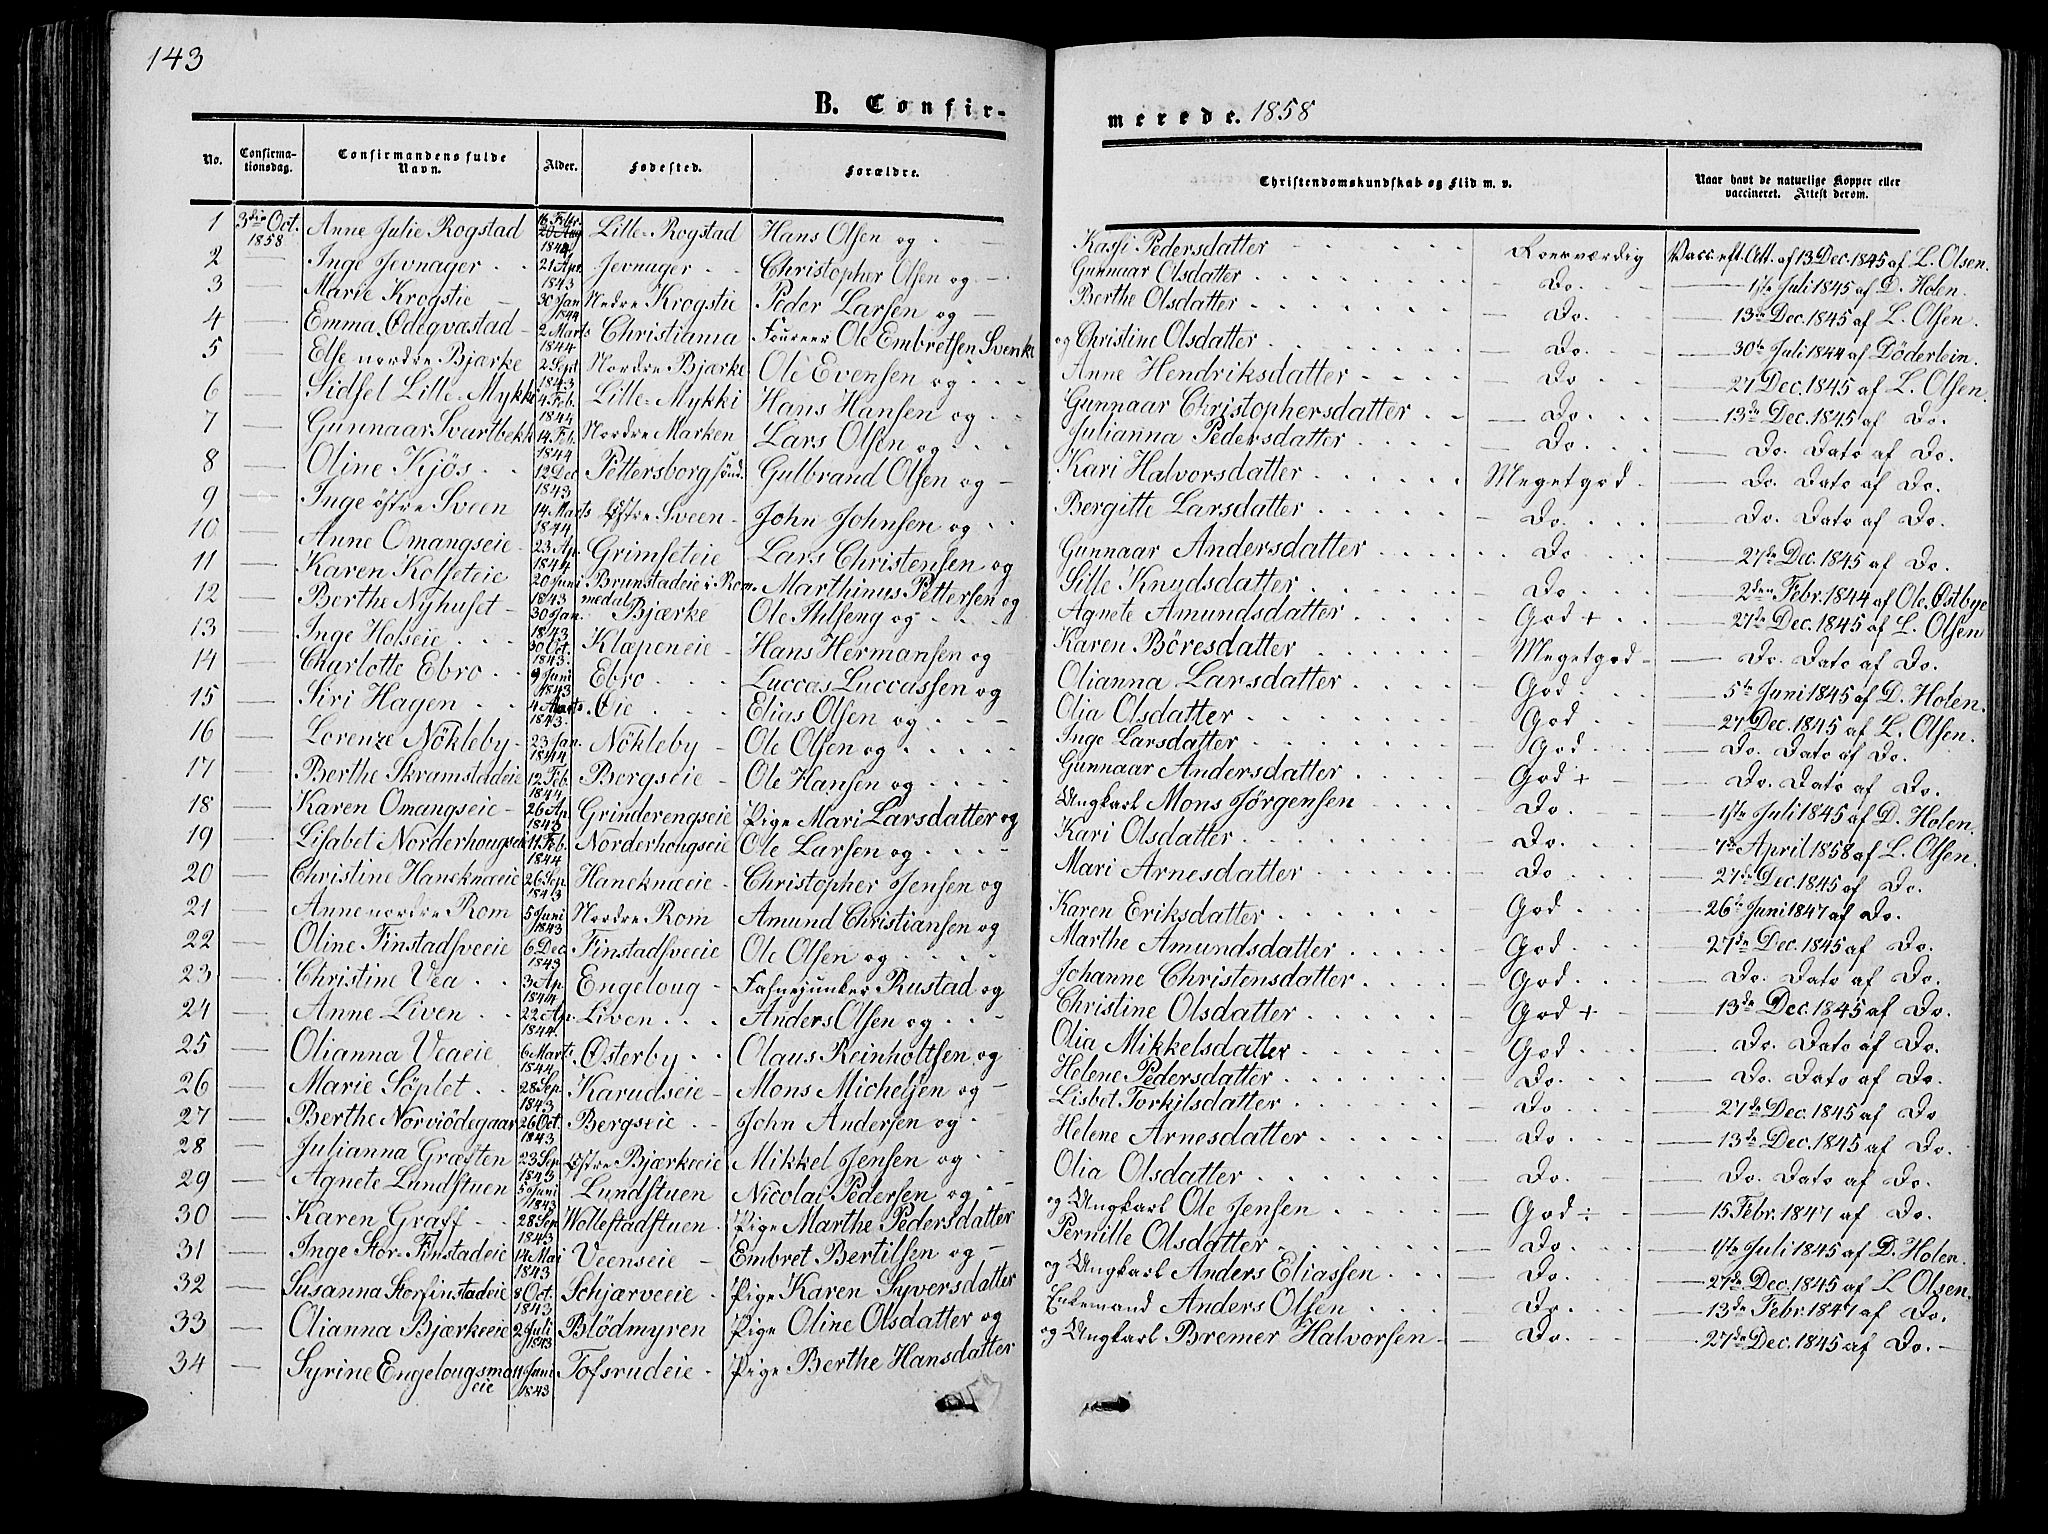 143
B. Confir-
merede. 1858
No. Confirma-tionsdag. Confirmandens fulde Navn. Alder. Fødested. Forældre. Christendomskundskab og Flid m. v. Naar havt de naturlige Kopper eller vaccineret. Attest derom.
1 3die Oct. 1858 Anne Julie Rogstad 16 Febr. 1844 Lille-Rogstad Hans Olsen og Kassi Pedersdatter Roesværdig Vacc. eft. Att. af 13 Dec. 1845 af L. Olsen.
2 Inge Jevnager 21 Apr. 1843 Jevnager Christopher Olsen og Gunnaar Olsdatter Do. 1ste Juli 1845 af D. Holen.
3 Marie Krogstie 30 Jan 1844 Nedre Krogstie Peder Larsen og Berthe Olsdatter Do. 13de Dec. 1845 af L. Olsen.
4 Emma Ødeqvæstad 2 Marts 1844 Christiania Foureer Ole Embretsen Svenke og Christine Olsdatter Do. 30te Juli 1844 af Döderlein.
5 Else nordre Bjærke 2 Sept 1843 Nordre Bjærke Ole Evensen og Anne Hendriksdatter Do. 27 Dec. 1845 af L. Olsen.
6 Sidsel Lille-Mykki 4 Feb. 1844 Lille-Mykki Hans Hansen og Gunnaar Christophersdatter Do. 13de Dec. 1845 af Do.
7 Gunnaar Svartbekk 14 Feb. 1844 Nordre Marken Lars Olsen og Julianna Pedersdatter Do. Do. Dato af Do.
8 Oline Kjös 12 Dec 1843 Pettersborg sönd. Gulbrand Olsen og Kari Halvorsdatter Meget god Do. Dato af Do.
9 Inge østre Sveen 14 Marts 1844 Østre Sveen John Johnsen og Bergitte Larsdatter Do. Do. Dato af Do.
10 Anne Omangseie 23 Ap. 1844 Grimseteie Lars Christensen og Gunnaar Andersdatter Do 27de Dec. 1845 af Do.
11 Karen Kolseteie 20 Juni 1843 Brunstadeie i Rommedal Marthinus Pettersen og Sille Knudsdatter Do 2den Febr. 1844 af Ole Østbye
12 Berthe Nyhuset 30 Jan. 1843 Bjærke Ole Thlseng og Agnete Amundsdatter God + 27de Dec. 1845 af L. Olsen
13 Inge Holseie 30 Oct. 1843. Klæpeneie Hans Hermansen og Karen Böresdatter Meget god Do. Dato af Do.
14 Charlotte Ebro 9 Juni 1843 Ebro Luccas Luccassen og Olianna Larsdatter God 5te Juni 1845 af D. Holen.
15 Siri Hagen 4 Marts 1843. Øie Elias Olsen og Olia Olsdatter God 27 Dec. 1845 af L. Olsen.
16 Lorenze Nökleby 23 Jan. 1844 Nökleby Ole Olsen og Inge Larsdatter God Do. Dato af Do.
17 Berthe Skramstadeie 12 Feb. 1844 Bergseie Ole Hansen og Gunnaar Andersdatter God + Do. Dato af Do.
18 Karen Omangseie 26 Ap. 1843 Grinderengseie Pige Mari Larsdatter og Ungkarl Mons Jörgensen Do. 1ste Juli 1845 af D. Holen.
19 Lisabet Norderhougseie 11 Feb. 1844 Norderhougseie Ole Larsen og Kari Olsdatter Do. 7de April 1858 af L. Olsen.
20 Christine Haneknæeie 26 Sep. 1843 Haneknæeie Christopher Jensen og Mari Arnesdatter Do 27de Dec. 1845 af Do.
21 Anne nordre Rom 5 Juni 1843 Nordre Rom Amund Christiansen og Karen Eriksdatter God 26te Juni 1847 af Do.
22 Oline Finstadsveeie 6 Dec. 1843 Finstadsveeie Ole Olsen og Marthe Amundsdatter God 27de Dec. 1845 af Do.
23 Christine Vea 3 Ap. 1844 Engeloug Fafnejunker Rustad og Johanne Christensdatter God Do. Dato af Do.
24 Anne Liven 22 Ap. 1844 Liven Anders Olsen og Christine Olsdatter God + 13de Dec. 1845 af Do.
25 Olianna Veaeie 6 Marts 1844 Østerby Olaus Reinholtsen og Olia Mikkelsdatter God Do. Dato af Do.
26 Marie Söplet 28 Sep. 1843 Karudseie Mons Michelsen og Helene Pedersdatter Do. Do. Dato af Do.
27 Berthe Norviödegaar 26 Oct. 1843 Bergseie John Andersen og Lisbet Torkilsdatter Do 27de Dec. 1845 af Do.
28 Julianna Græsten 23 Sep 1843 Østre Bjærkeeie Mikkel Jensen og Helene Arnesdatter Do 13de Dec. 1845 af Do.
29 Agnete Lundstuen 5 Juni 1843 Lundstuen Nicolai Pedersen og Olia Olsdatter Do. Do. Dato af Do.
30 Karen Graff 28 Sep. 1843 Wollestadstuen Pige Marthe Pedersdatter og Ungkarl Ole Jensen God ÷ 15 Febr. 1847 af Do.
31 Inge Stor-Finstadeie 14 Mai 1843 Veenseie Embret Bertilsen og Pernille Olsdatter Do. 1ste Juli 1845 af D. Holen.
32 Susanna Storfinstadeie 8 Oct. 1843 Schjærveeie Pige Karen Syversdatter og Ungkarl Anders Eliassen Do. 27de Dec. 1845 af L Olsen.
33 Olianna Bjærkeeie 2 Juli 1843 Blödmyren Pige Oline Olsdatter og Enkemand Anders Olsen Do. 13de Febr. 1847 af Do.
34 Syrine Engelougsmoeie 11 Juni 1843 Tofsrudeie Pige Berthe Hansdatter og Ungkarl Bremer Halvorsen Do. 27de Dec. 1845 af Do.